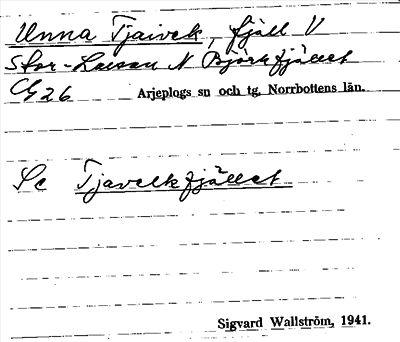 Unna Tjaivek, fjäll V
Stor-Laisan N Björkfjället
CG26 Arjeplogs sn och tg, Norrbottens län.
Se Tjavelkfjället
Sigvard Wallström, 1941.